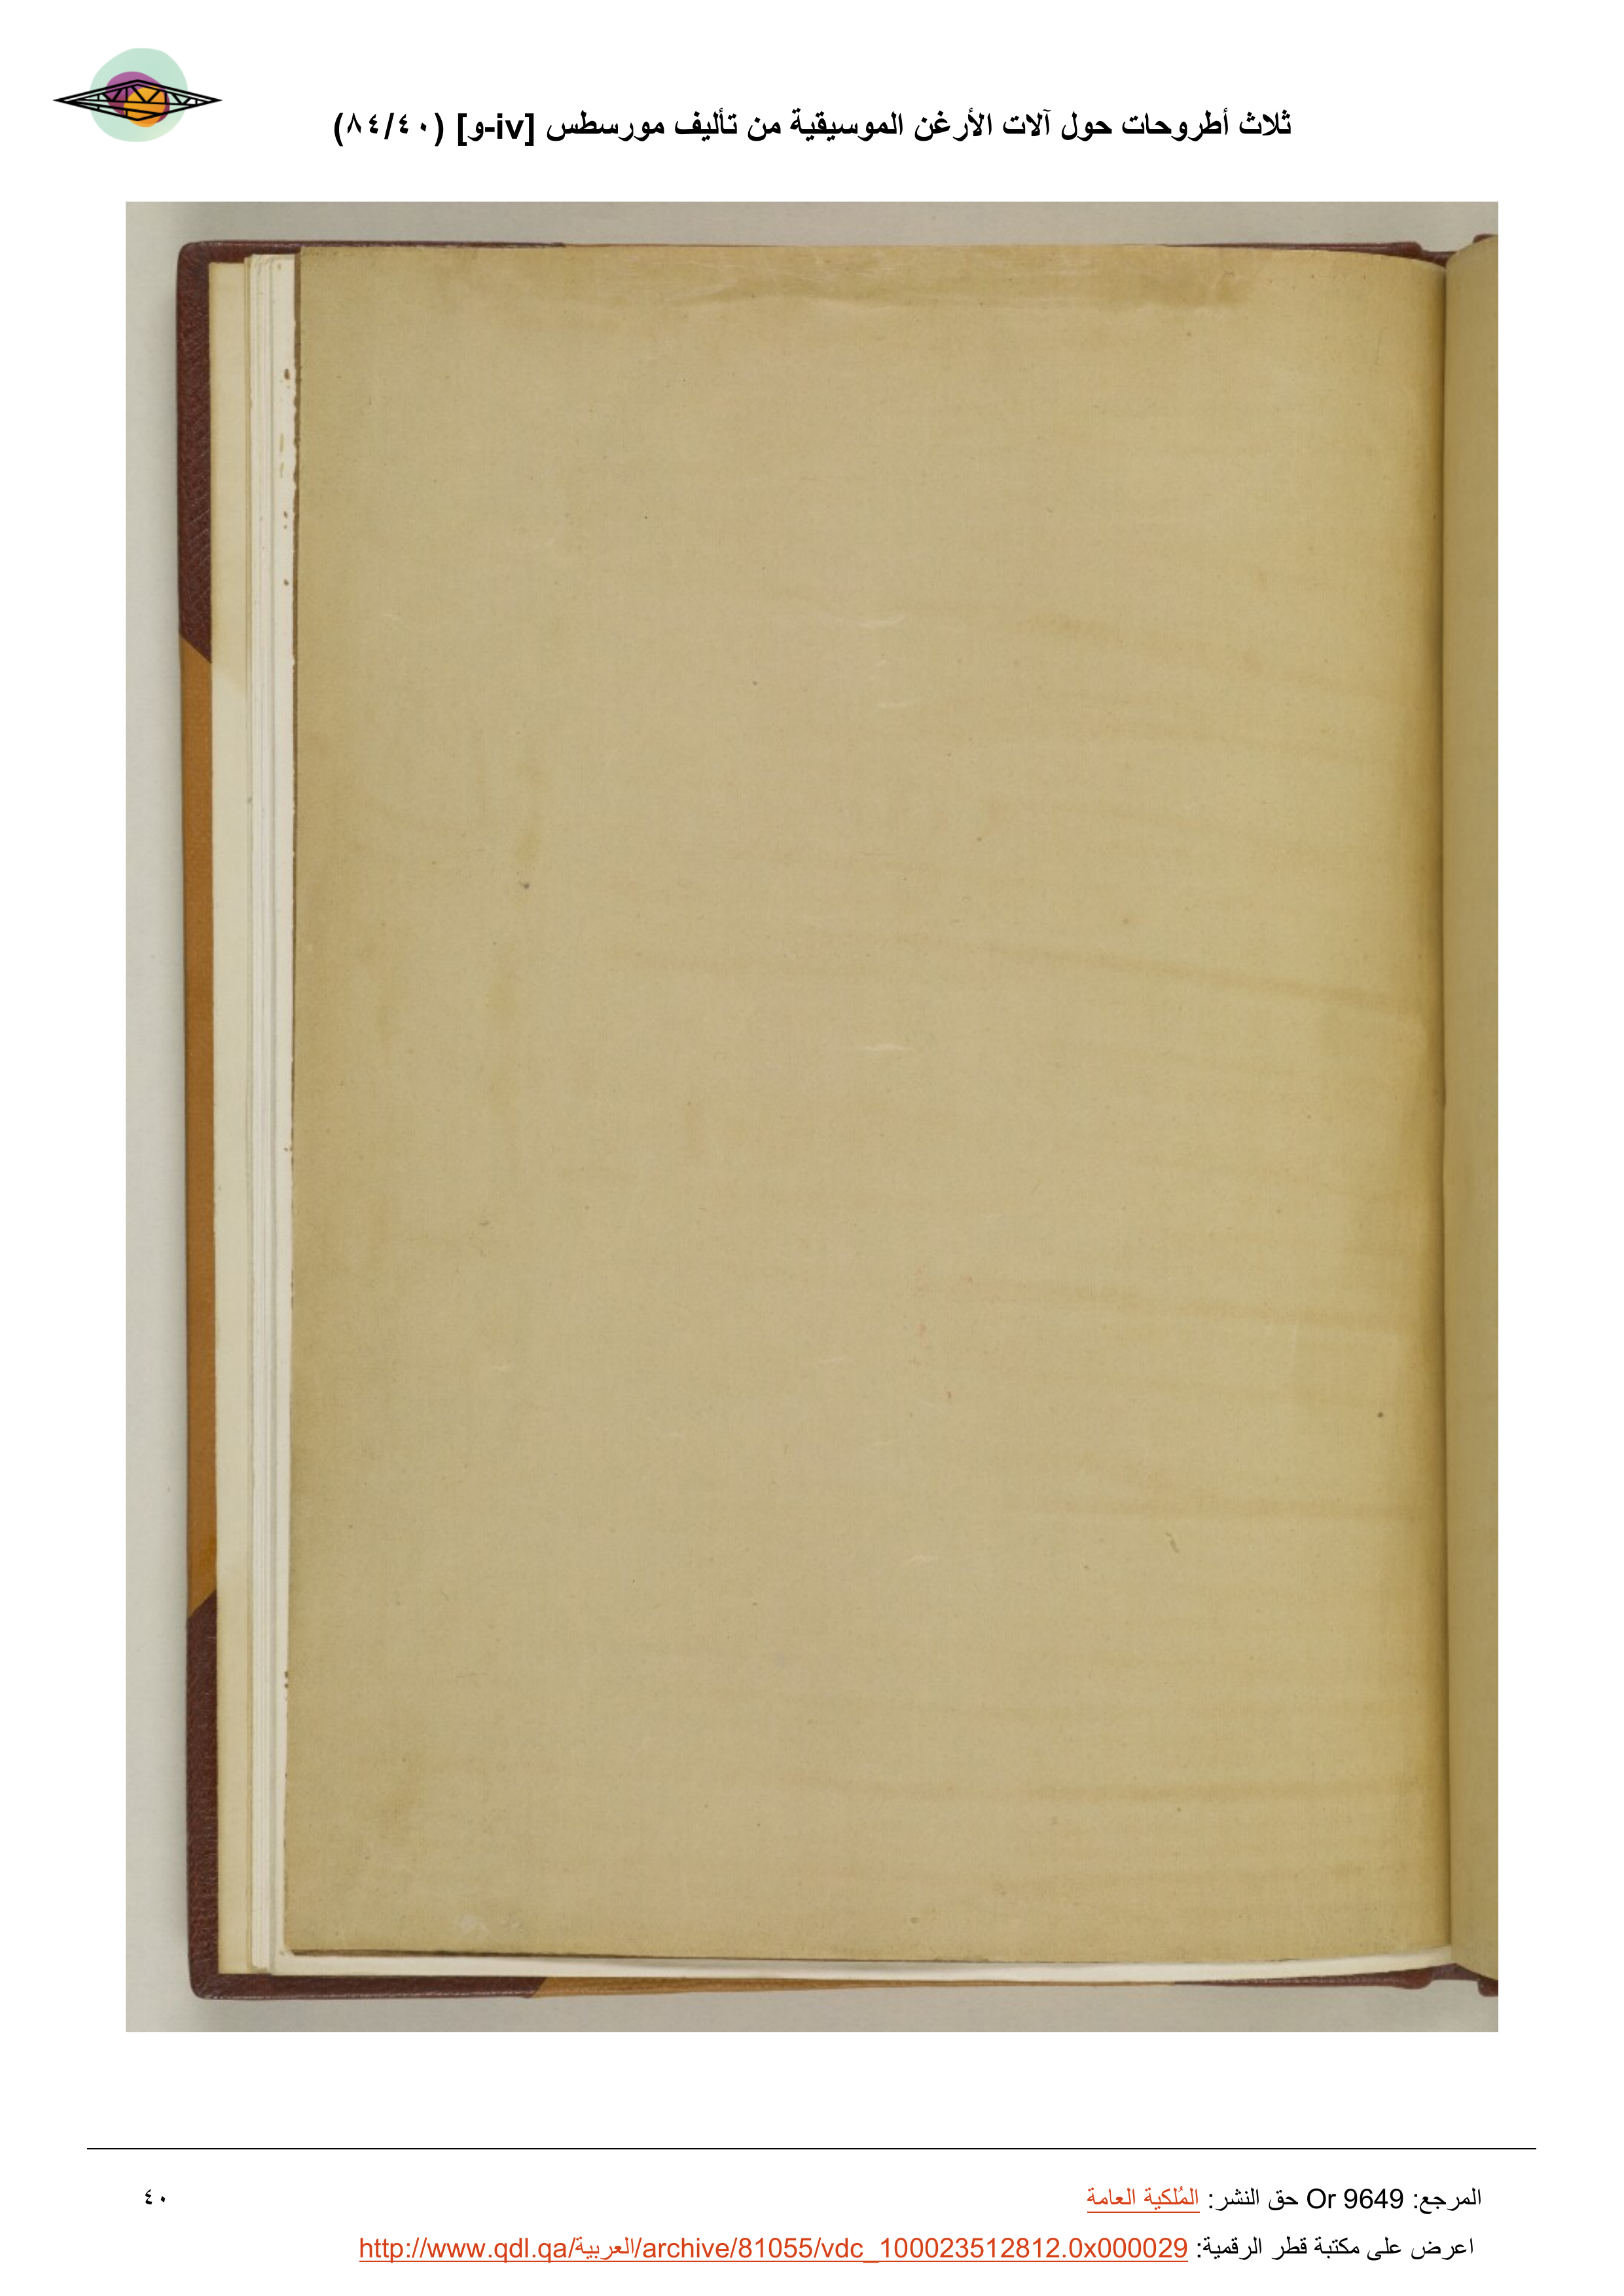 ثلاث أطروحات حول آلات الأرغن الموسيقية من تأليف مورسطس [iv-و] (٨٤/٤٠)
المرجع: Or 9649 حق النشر: المُلكية العامة
٤٠
اعرض على مكتبة قطر الرقمية: http://www.qdl.qa/العربية/archive/81055/vdc_100023512812.0x000029